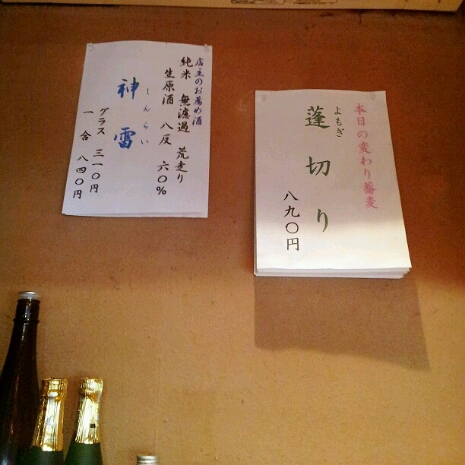 店主のお薦め酒
純米 無濾過 荒走り
生原酒 八反 六〇%
しんらい
神雷
グラス 三一〇円
一合 八四〇円
本日の変わり蕎麦
よもぎ
蓬切り
八九〇円